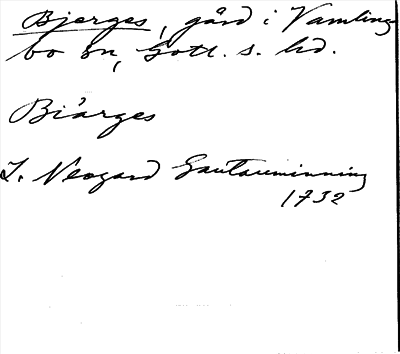 Bjerges, gård i Vamling-
bo sn, Gotl. s. hd.
Biärges
L. Neogard Gautauminning
1732